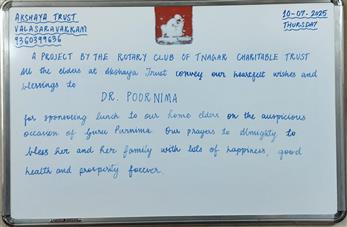 AKSHAYA TRUST
VALASARAVAKKAM
9360399636
10-07-2025
THURSDAY
A PROJECT BY THE ROTARY CLUB OF T.NAGAR CHARITABLE TRUST
All the elders at Akshaya Trust convey our heartfelt wishes and
blessings to
DR. POORNIMA
for sponsoring lunch to our home elders on the auspicious
occasion of Guru Purnima. Our prayers to Almighty to
bless her and her family with lots of happiness, good
health and prosperity forever.